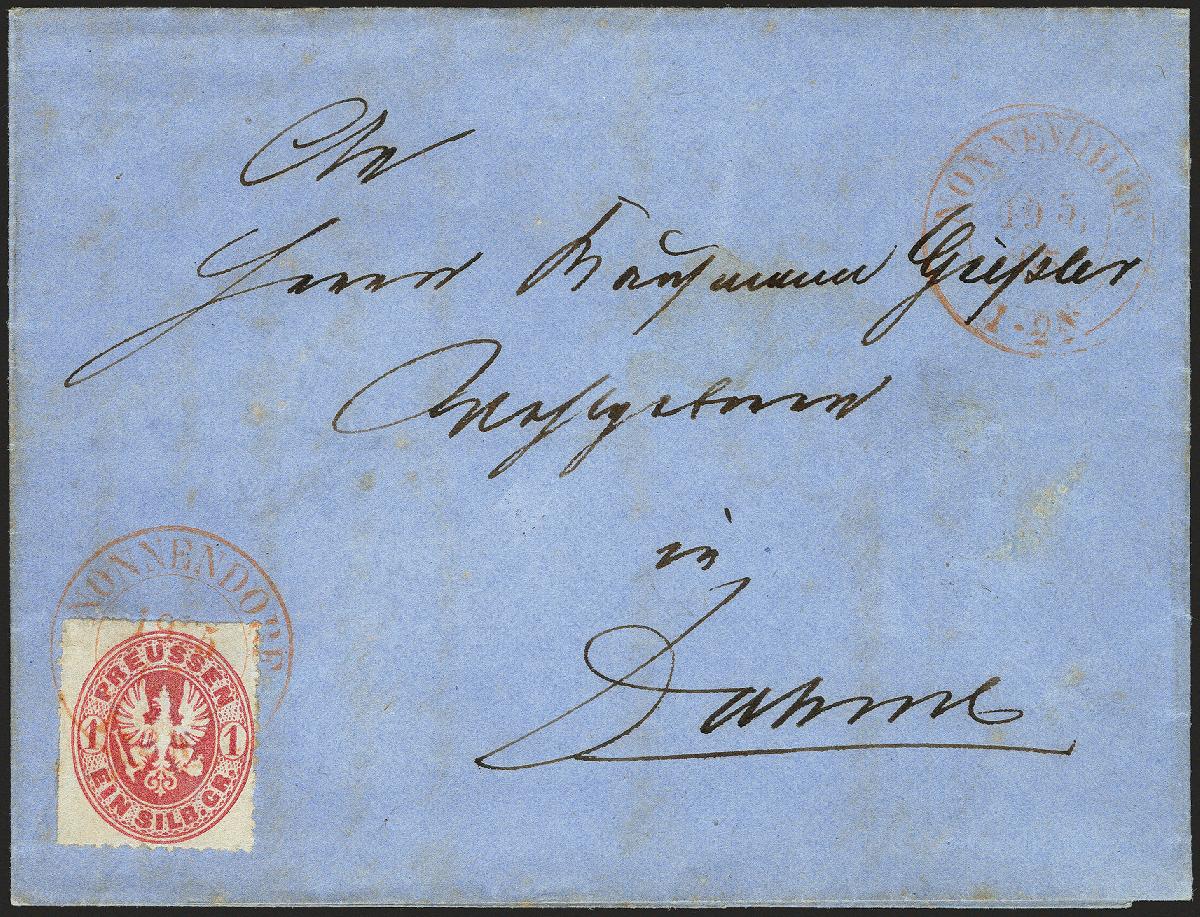 Herrn Kaufmann Gießler
Wohlgeboren
in
Dahme
NONNENDORF
19 5
1-2N
NONNENDORF
19 5
PREUSSEN
1 1
EIN SILB. GR.